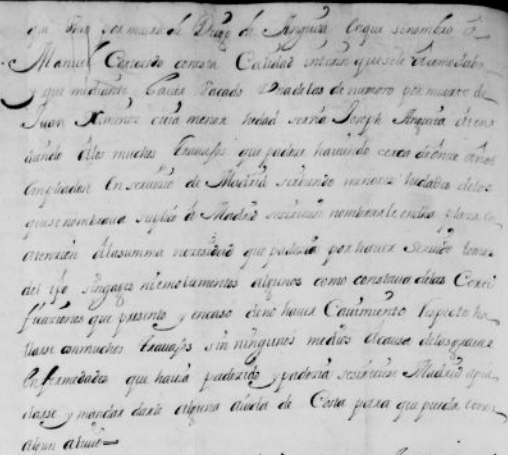 que hizo por muerte de Diego de Anguita en que se nombro á
Manuel Cavezudo con esta Calidad interin que sele Acomodaba
y que mediante haver Vacado Una delas de numero por muerte de
Juan Ximenez cuia menor hedad servia Joseph Anguita aten
diendo álos muchos travajos que padeze haviendo cerca de onze años
empleados En servicio de Madrid sirviendo menores hedades delos
que se nombrava suplicó á Madrid se sirviese nombrarle en dha plaza en
atencion ála summa nezesidad que padezia por haver Servido lo mas
del tpo sin gages ni emolumentos algunos como constava delas Certi
ficaciones que presento y encaso deno haver Cavimiento respecto ha
llarse con muchos travajos sin ningunos medios ácausa delas graves
Enfermedades que havia padezido y padezia se sirviese Madrid apia
darse y mandar darle alguna aiuda de Costa para que pueda tener
algun alivio=